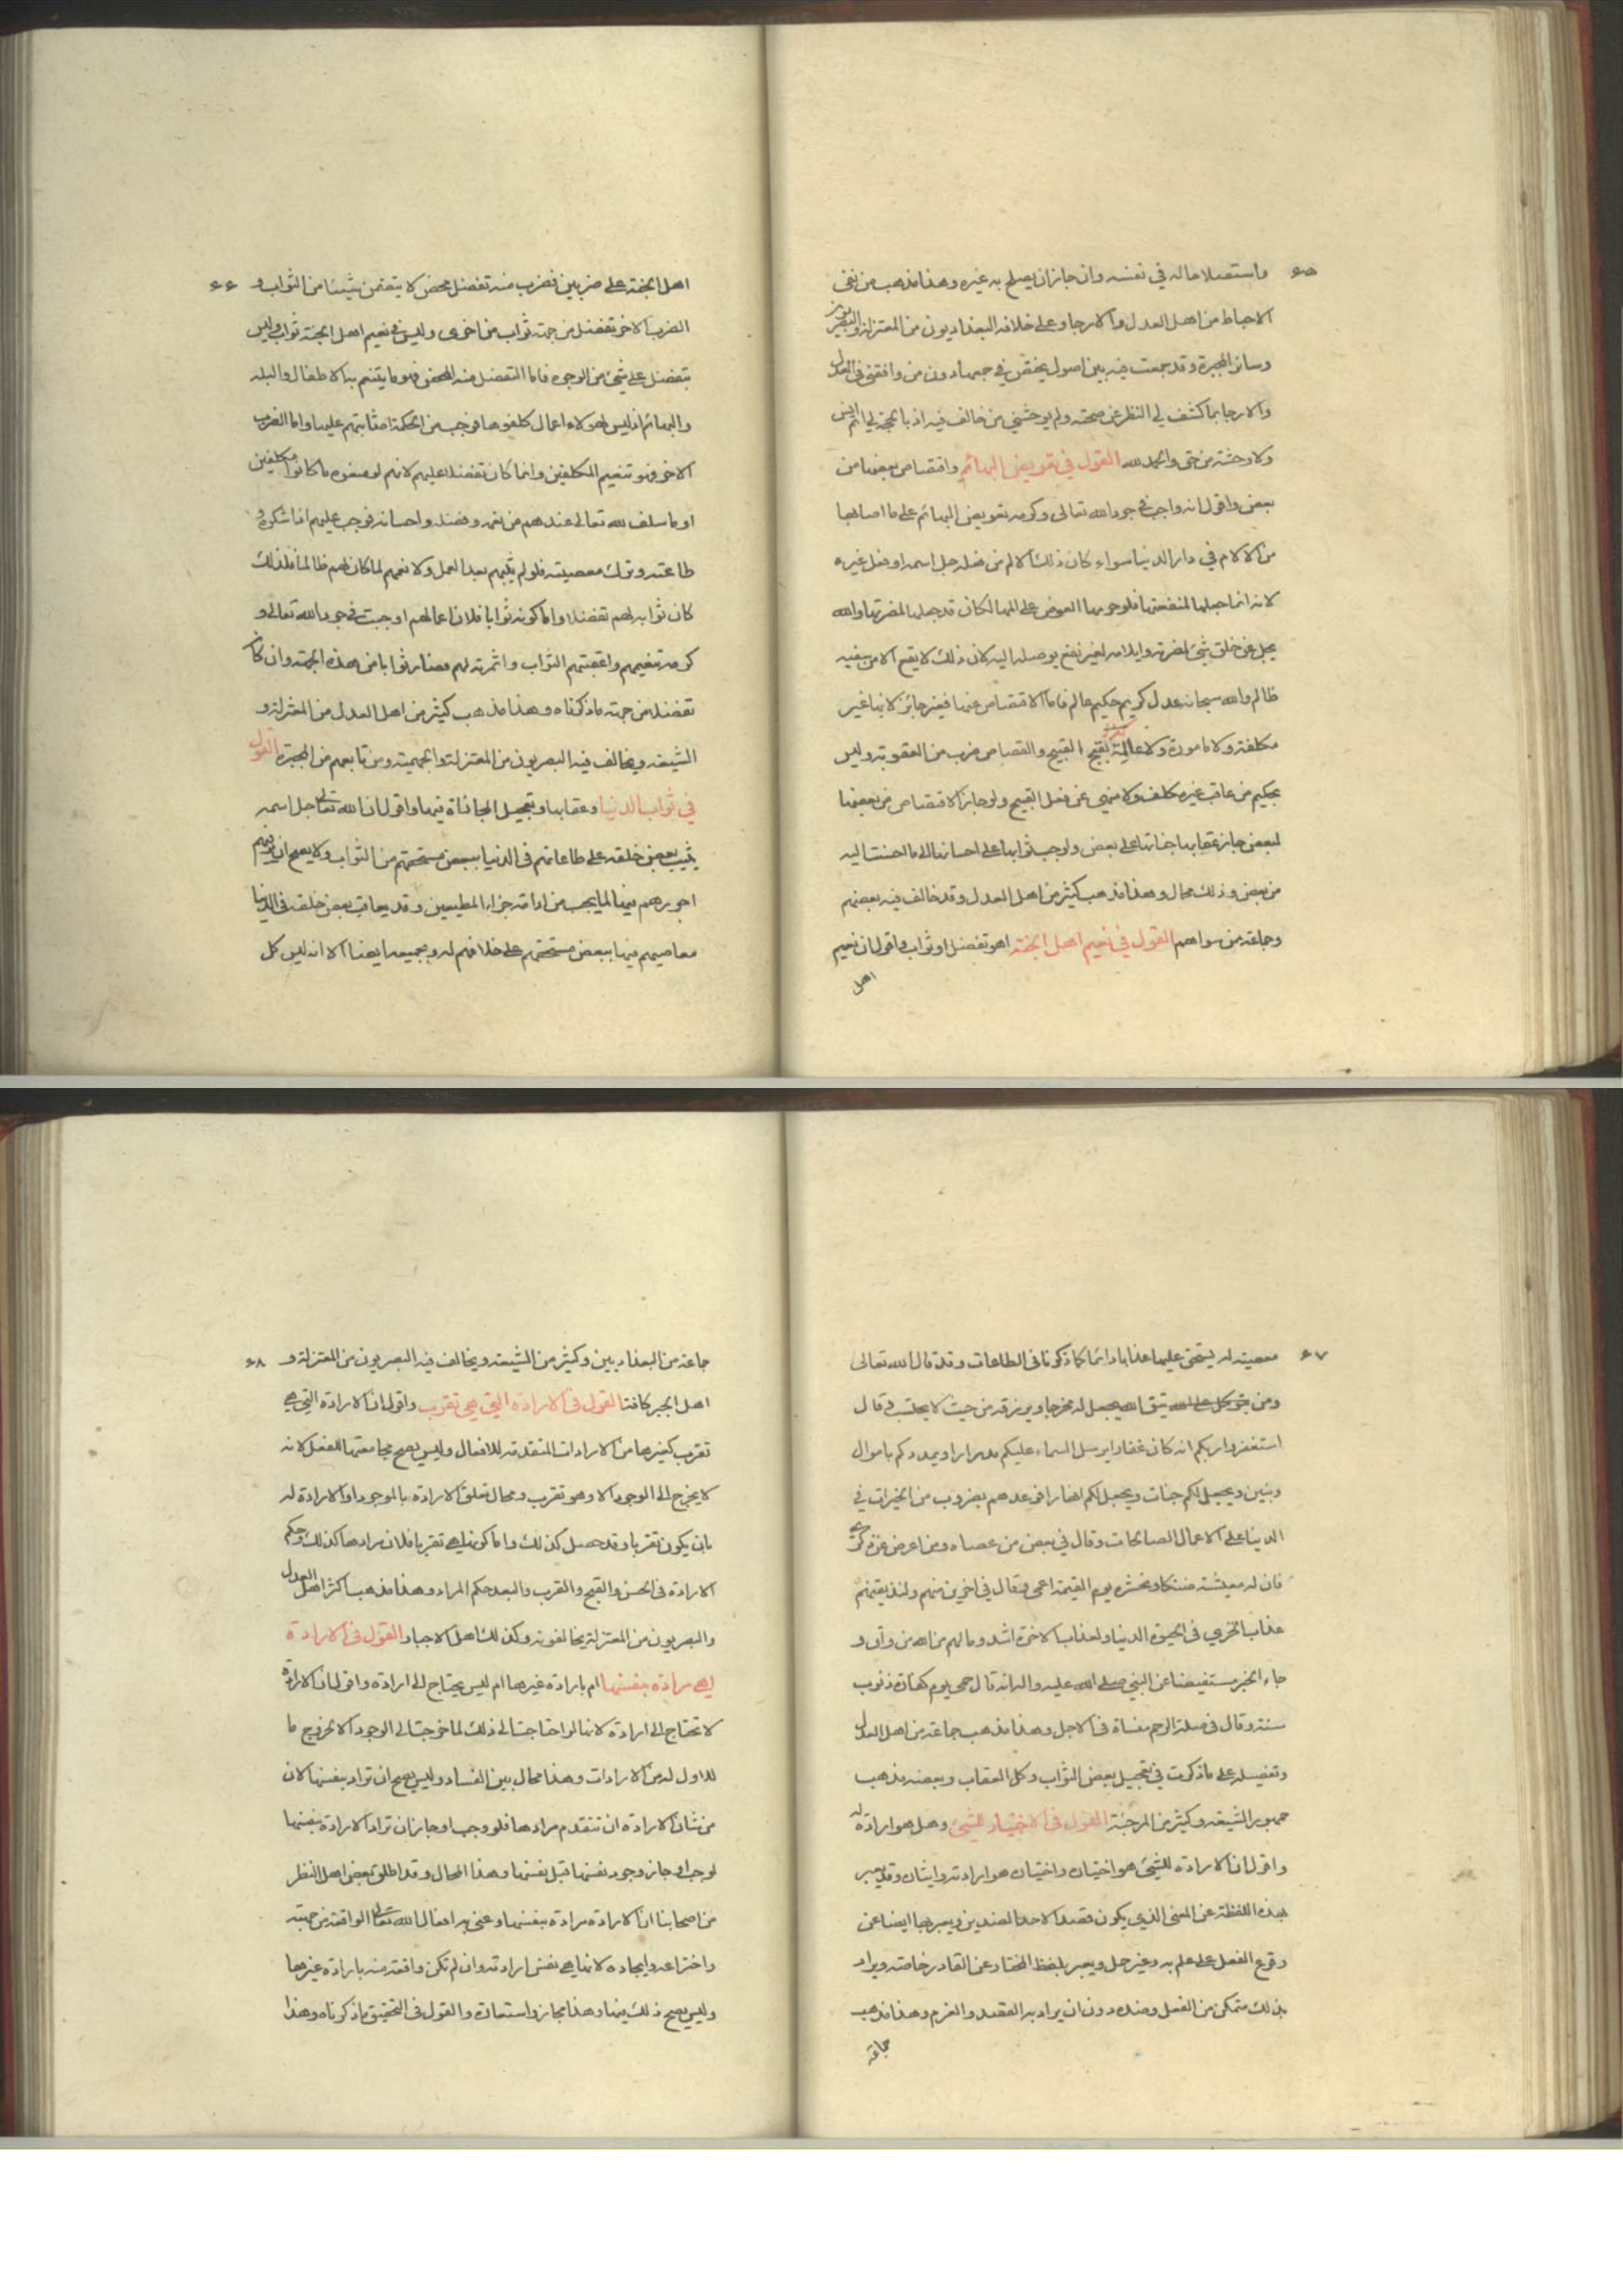 ۶۵
واستصلاحا له في نفسه وان جاز ان يصلح به غيره وهذا مذهب من نفى
الاحباط من اهل العدل والارجا وعلى خلافه البغداديون من المعتزلة والبصريون
وسائر المجبرة وقد جمعت فيه بين اصول يختص بي جمعها دون من وافقني في العدل
والارجا بما كشف لي النظر عن صحته ولم يوحشني من خالف فيه اذ بالحجة لي اتم انس
ولا وحشة من حق والحمد لله القول في تعويض البهائم واقتصاص بعضها من
بعض واقول انه واجب في جود الله تعالى وكرمه تعويض البهائم على ما اصابها
من الالام في دار الدنيا سواء كان ذلك الالم من فعله جل اسمه او فعل غيره
لانه انما جعلها لمنفعتها فلو حرمها العوض على المها لكان قد جعلها لمضرتها والله
يجل عن خلق شئ لمضرته وايلامه لغير نفع يوصله اليه لان ذلك لا يقع الا من سفيه
ظالم والله سبحانه عدل كريم حكيم عالم فاما الاقتصاص عنها فغير جائز لانها غير
مكلفة ولا مامورة ولا عالمة بقبح القبيح والقصاص ضرب من العقوبة وليس
بحكيم من عاقب غير مكلف ولا منهي عن فعل القبيح ولو جاز الاقتصاص من بعضها
لبعض جاز عقابها جناتها على بعض ولوجب ثوابها على احسانها الى ما احسنت اليه
من بعض وذلك محال وهذا مذهب كثير من اهل العدل وقد خالف فيه بعضهم
وجماعة من سواهم القول في نعيم اهل الجنة اهو تفضل او ثواب واقول ان نعيم
اهل
۶۶
اهل الجنة على ضربين فضرب منه تفضل محض لا يتضمن شيئا من الثواب و
الضرب الاخر تفضل من جهة ثواب من اخرى وليس في نعيم اهل الجنة ثواب وليس
بتفضل على شئ من الوجوه فاما التفضل منه المحض فهو ما يتنعم به الاطفال والبله
والبهائم اذ ليس لهولاء اعمال كلفوها فوجب من الحكمة اثابتهم عليها واما الضرب
الاخر فهو تنعيم المكلفين وانما كان تفضلا عليهم لانهم لو منعوه ما كانوا مظلومين
او ما سلف لله تعالى عندهم من نعمه وفضله واحسانه يوجب عليهم اداء شكره و
طاعته وترك معصيته فلو لم يثبهم بعد العمل ولا نعمهم لما كان لهم ظالما فلذلك
كان ثوابه لهم تفضلا واما كونه ثوابا فلان اعمالهم اوجبت في جود الله تعالى و
كرمه تنعيمهم واعقبتهم الثواب واثمرته لهم فصار ثوابا من هذه الجهة وان كان
تفضلا من جهة ما ذكرناه وهذا مذهب كثير من اهل العدل من المعتزلة و
الشيعة ويخالف فيه البصريون من المعتزلة والجهمية ومن تابعهم من المجبرة القول
في ثواب الدنيا وعقابها وتعجيل المجازاة فيها واقول ان الله تعالى جل اسمه
يثيب بعض خلقه على طاعاتهم في الدنيا ببعض مستحقهم من الثواب ولا يصح ان يوفيهم
اجورهم فيها لما يجب من ادامة جزاء المطيعين وقد يعاقب بعض خلقه في الدنيا
معاصيهم فيها ببعض مستحقهم على خلافهم له وبجميعه ايضا الا انه ليس كل
۶۷
معصية له يستحق عليها عذابا دائما كما ذكرنا في الطاعات وقد قال الله تعالى
ومن يتوكل على الله يتق الله يجعل له مخرجا ويرزقه من حيث لا يحتسب وقال
استغفروا ربكم انه كان غفارا يرسل السماء عليكم مدرارا ويمددكم باموال
وبنين ويجعل لكم جنات ويجعل لكم انهارا فوعدهم بضروب من الخيرات في
الدنيا على الاعمال الصالحات وقال في بعض من عصاه ومن اعرض عن ذكري
فان له معيشة ضنكا ونحشره يوم القيمة اعمى وقال في اخرين منهم ولنذيقنهم
عذاب الخزي في الحيوة الدنيا ولعذاب الاخرة اشد وما لهم من الله من واق و
جاء الخبر مستفيضا عن النبي صلى الله عليه واله انه قال حمى يوم كفارة ذنوب
سنة وقال في صلة الرحم منساة في الاجل وهذا مذهب جماعة من اهل العدل
وتفصيله على ما ذكرت في تعجيل بعض الثواب وكل العقاب وبعضه مذهب
جمهور الشيعة وكثير من المرجئة القول في الاختيار للشئ وهل هو ارادة له
واقول ان الارادة للشئ هو اختياره واختياره هو ارادته وايثاره وقد يعبر
بهذه اللفظة عن المعنى الذي يكون قصدا لاحد الضدين ويعبر بها ايضا عن
وقوع الفعل على علم به وغير حمل ويعبر بلفظ المختار عن القادر خاصة ويراد
بذلك متمكن من الفعل وضده دون ان يراد به القصد والعزم وهذا مذهب
جماعة
۶۸
جماعة من البغداديين وكثير من الشيعة ويخالف فيه البصريون من المعتزلة و
اهل الجبر كافة القول في الارادة التي هي تقرب واقول ان الارادة التي هي
تقرب كغيرها من الارادات المتقدمة للافعال وليس يصح مجامعتها للفعل لانه
لا يخرج الى الوجود الا وهو تقرب ومحال تعلق الارادة بالموجود او الارادة له
بان يكون تقربا وقد حصل كذلك واما كونها هي تقربا فلان مرادها كذلك وحكم
الارادة في الحسن والقبح والقرب والبعد حكم المراد وهذا مذهب اكثر اهل العدل
والبصريون من المعتزلة يخالفونه وكذلك اهل الاجبار القول في الارادة
هي مرادة بنفسها ام بارادة غيرها ام ليس يحتاج الى ارادة واقول ان الارادة
لا تحتاج الى ارادة لانها لو احتاجت الى ذلك لما خرجت الى الوجود الا بخروج ما
لا اول له من الارادات وهذا محال بين الفساد وليس يصح ان تراد بنفسها لان
من شان الارادة ان تتقدم مرادها فلو وجب او جاز ان تراد الارادة بنفسها
لوجب او جاز وجود نفسها قبل نفسها وهذا المحال وقد اطلق بعض اهل النظر
من اصحابنا ان الارادة مرادة بنفسها وعنى به افعال الله تعالى الواقعة من جهته
واختراعه وايجاده لانها هي نفس ارادته وان لم تكن واقعة منه بارادة غيرها
وليس يصح ذلك فيها وهذا مجاز واستعارة والقول في التحقيق ما ذكرناه وهذا